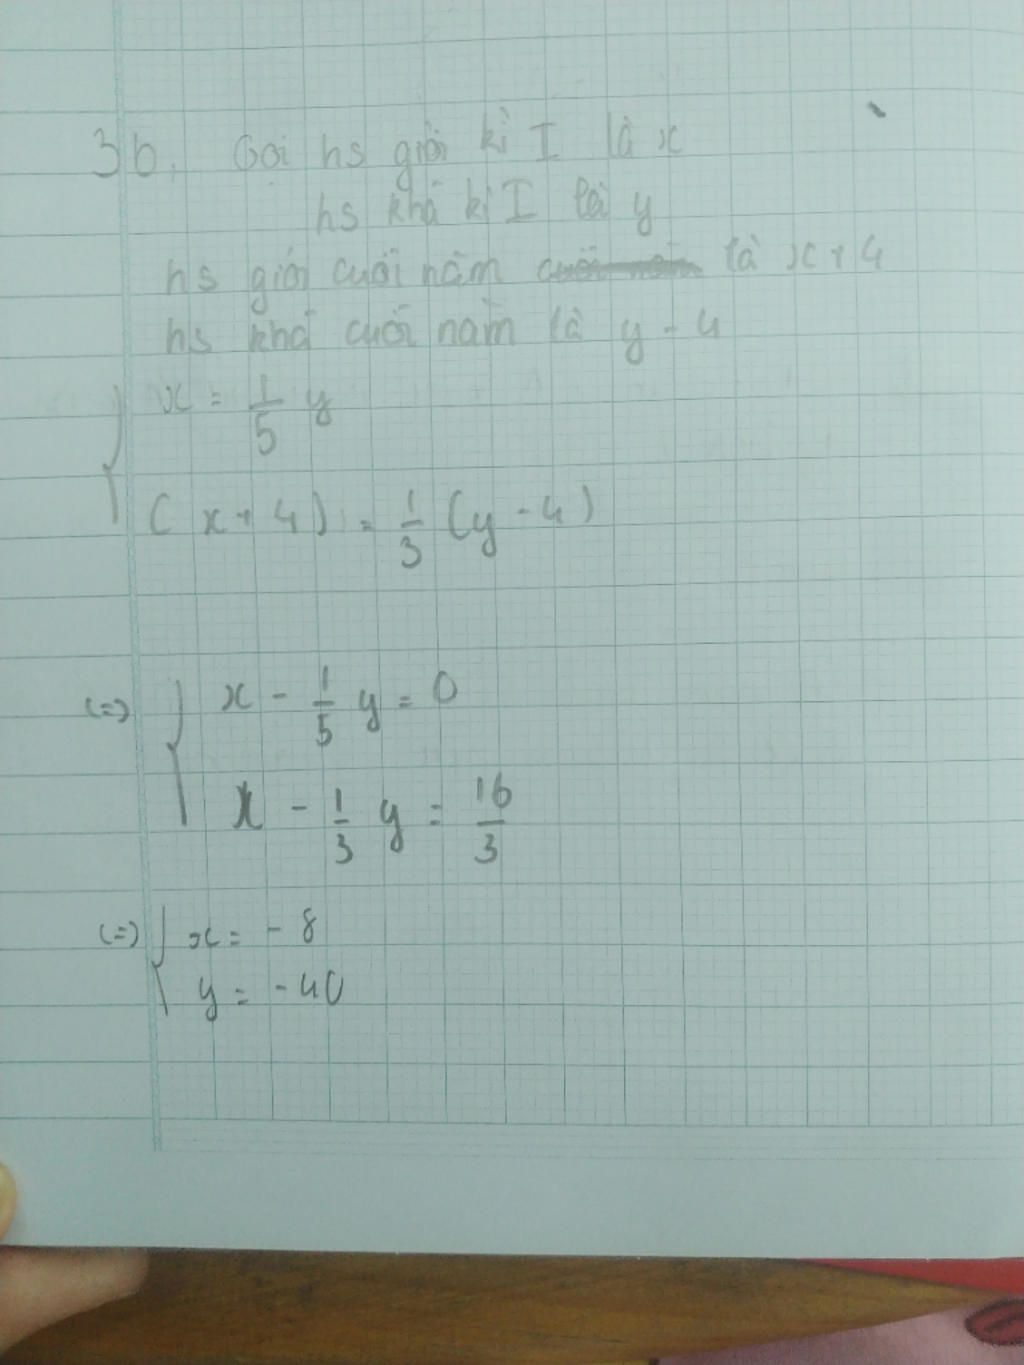 3b. Gọi hs giỏi kì I là x
hs khá kì I là y
hs giỏi cuối năm là x + 4
hs khá cuối năm là y - 4
x = 1/5 y
(x + 4) = 1/3 (y - 4)
(=) x - 1/5 y = 0
x - 1/3 y = 16/3
(=) x = - 8
y = - 40